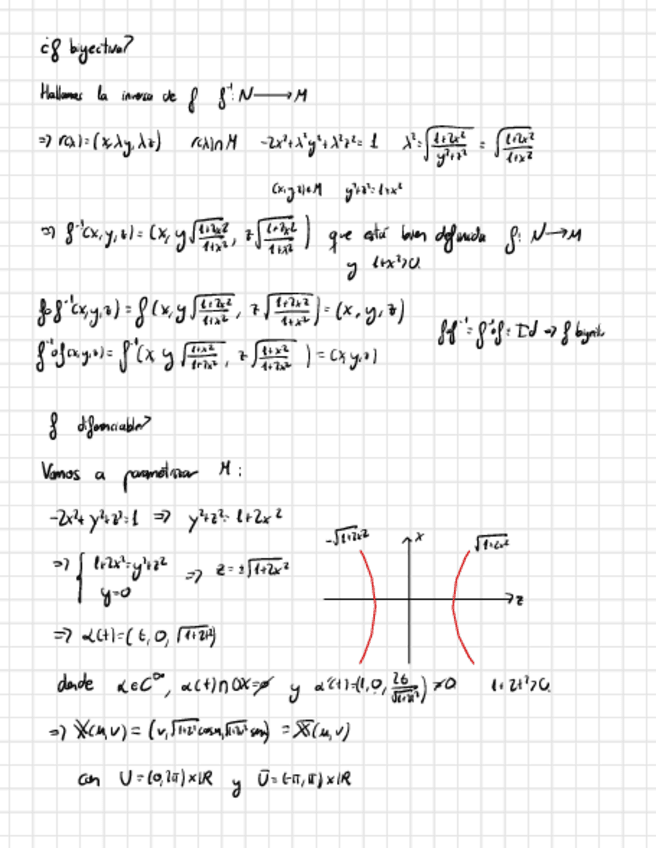 ¿f biyectiva?
Hallamos la inversa de f f⁻¹: N → M
⇒ r(λ) = (x, λy, λz) r(λ)∩M -2x²+λ²y²+λ²z²=1 λ²=√((1+2x²)/(y²+z²)) = √((1+2x²)/(1+x²))
(x,y,z)∈M y²+z²=1+x²
⇒ f⁻¹(x,y,z) = (x, y√((1+2x²)/(1+x²)), z√((1+2x²)/(1+x²))) que está bien definida f: N → M
y 1+x²>0.
f∘f⁻¹(x,y,z) = f(x, y√((1+2x²)/(1+x²)), z√((1+2x²)/(1+x²))) = (x, y, z)
f⁻¹∘f(x,y,z) = f⁻¹(x y√((1+x²)/(1+2x²)), z√((1+x²)/(1+2x²))) = (x y,z)
f∘f⁻¹ = f⁻¹∘f = Id ⇒ f
f diferenciable?
Vamos a parametrizar M:
-2x²+y²+z²=1 ⇒ y²+z²=1+2x²
⇒ { 1+2x²=y²+z²
y=0
⇒ z=±√(1+2x²)
-√(1+2x²) x √(1+2x²)
z
⇒ α(t)=(t, 0, √(1+2t²))
donde α∈C^∞, α(t)∩OX=∅ y α'(t)=(1,0, 2t/√(1+2t²)) ≠0 1+2t²>0.
⇒ X(u,v) = (v, √(1+2v²) cosu, √(1+2v²) senu) = X̄(u,v)
con U=(0,2π)×ℝ y Ū=(-π,π)×ℝ